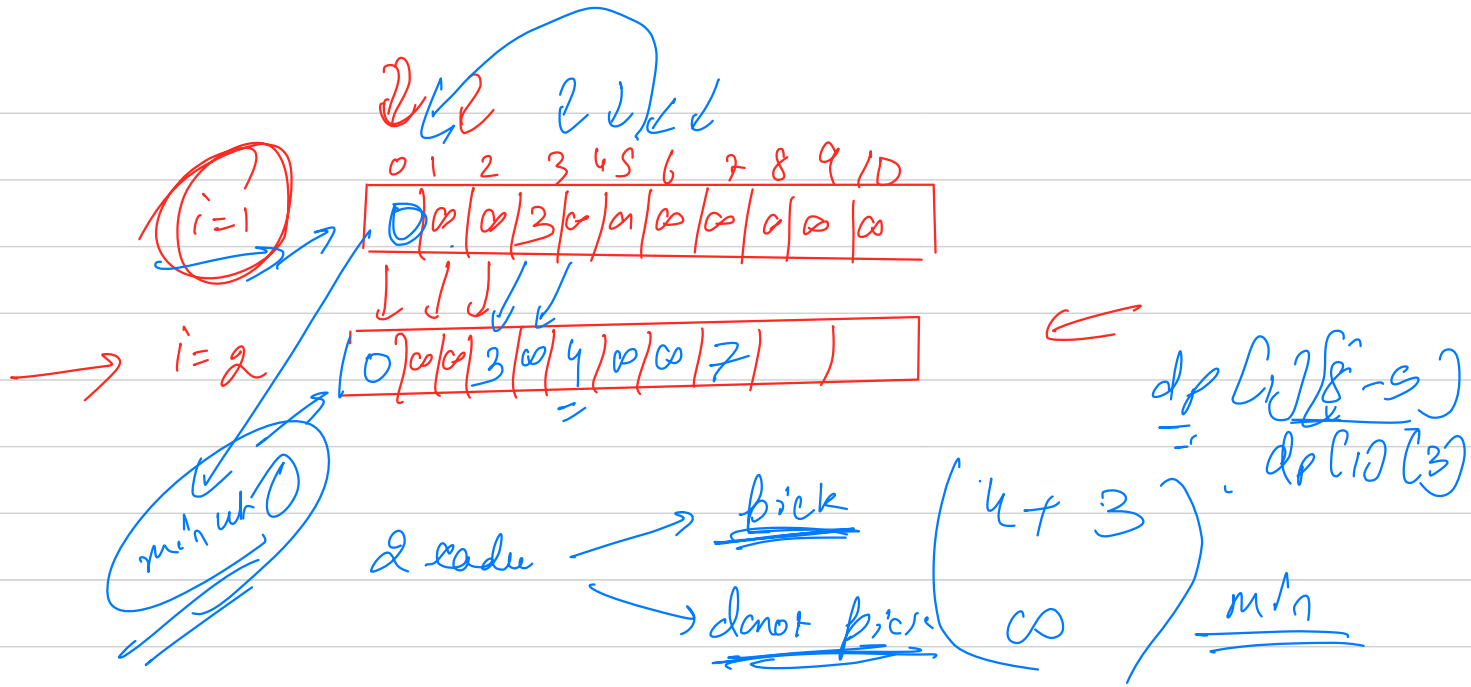 0 1 2 3 4 5 6 7 8 9 10
i=1 0 ∞ ∞ 3 ∞ ∞ ∞ ∞ ∞ ∞ ∞
i=2 0 ∞ ∞ 3 ∞ 4 ∞ ∞ 7
dp[1][8-5]
dp[1][3]
min wt
pick 4+3
donot pick ∞ min